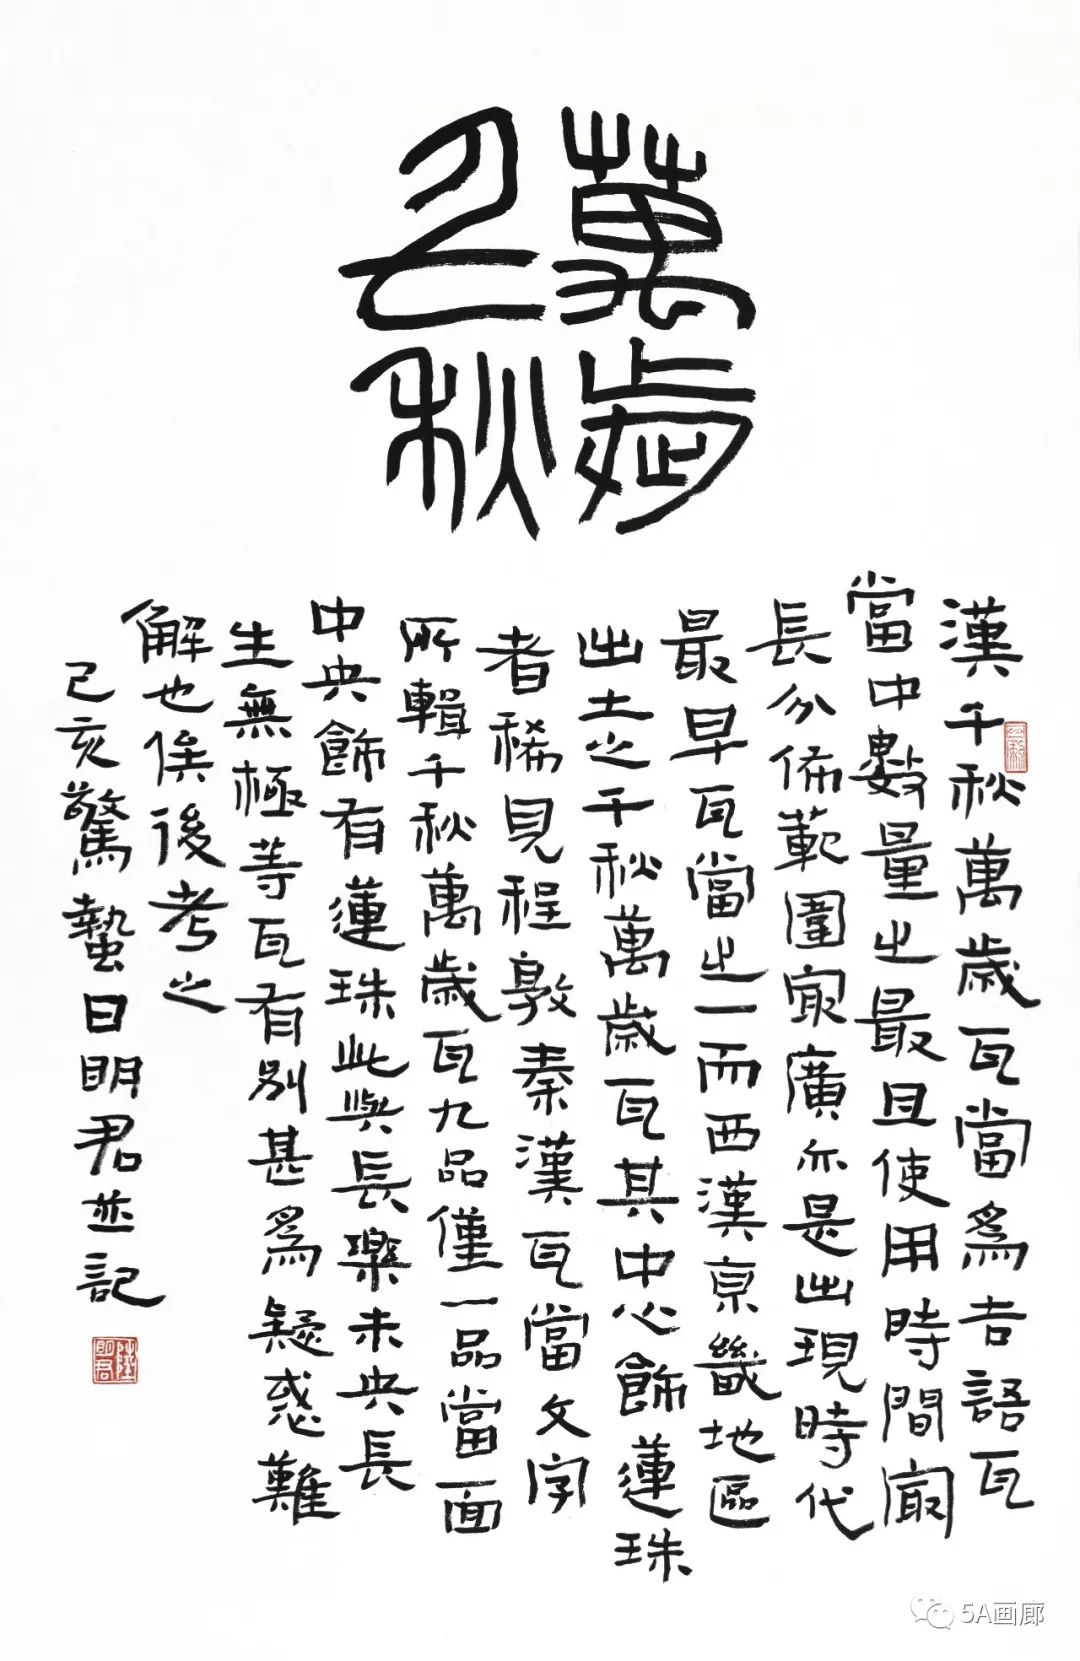 萬歲
千秋
漢千秋萬歲瓦當爲吉語瓦
當中數量之最且使用時間冣
長分佈範圍冣廣亦是出現時代
最早瓦當之一而西漢京畿地區
出土之千秋萬歲瓦其中心飾蓮珠
者稀見程敦秦漢瓦當文字
所輯千秋萬歲瓦九品僅一品當面
中央飾有蓮珠此與長樂未央長
生無極等瓦有別甚爲疑惑難
解也俟後考之
己亥驚蟄日明君並記
陸明君
5A画廊